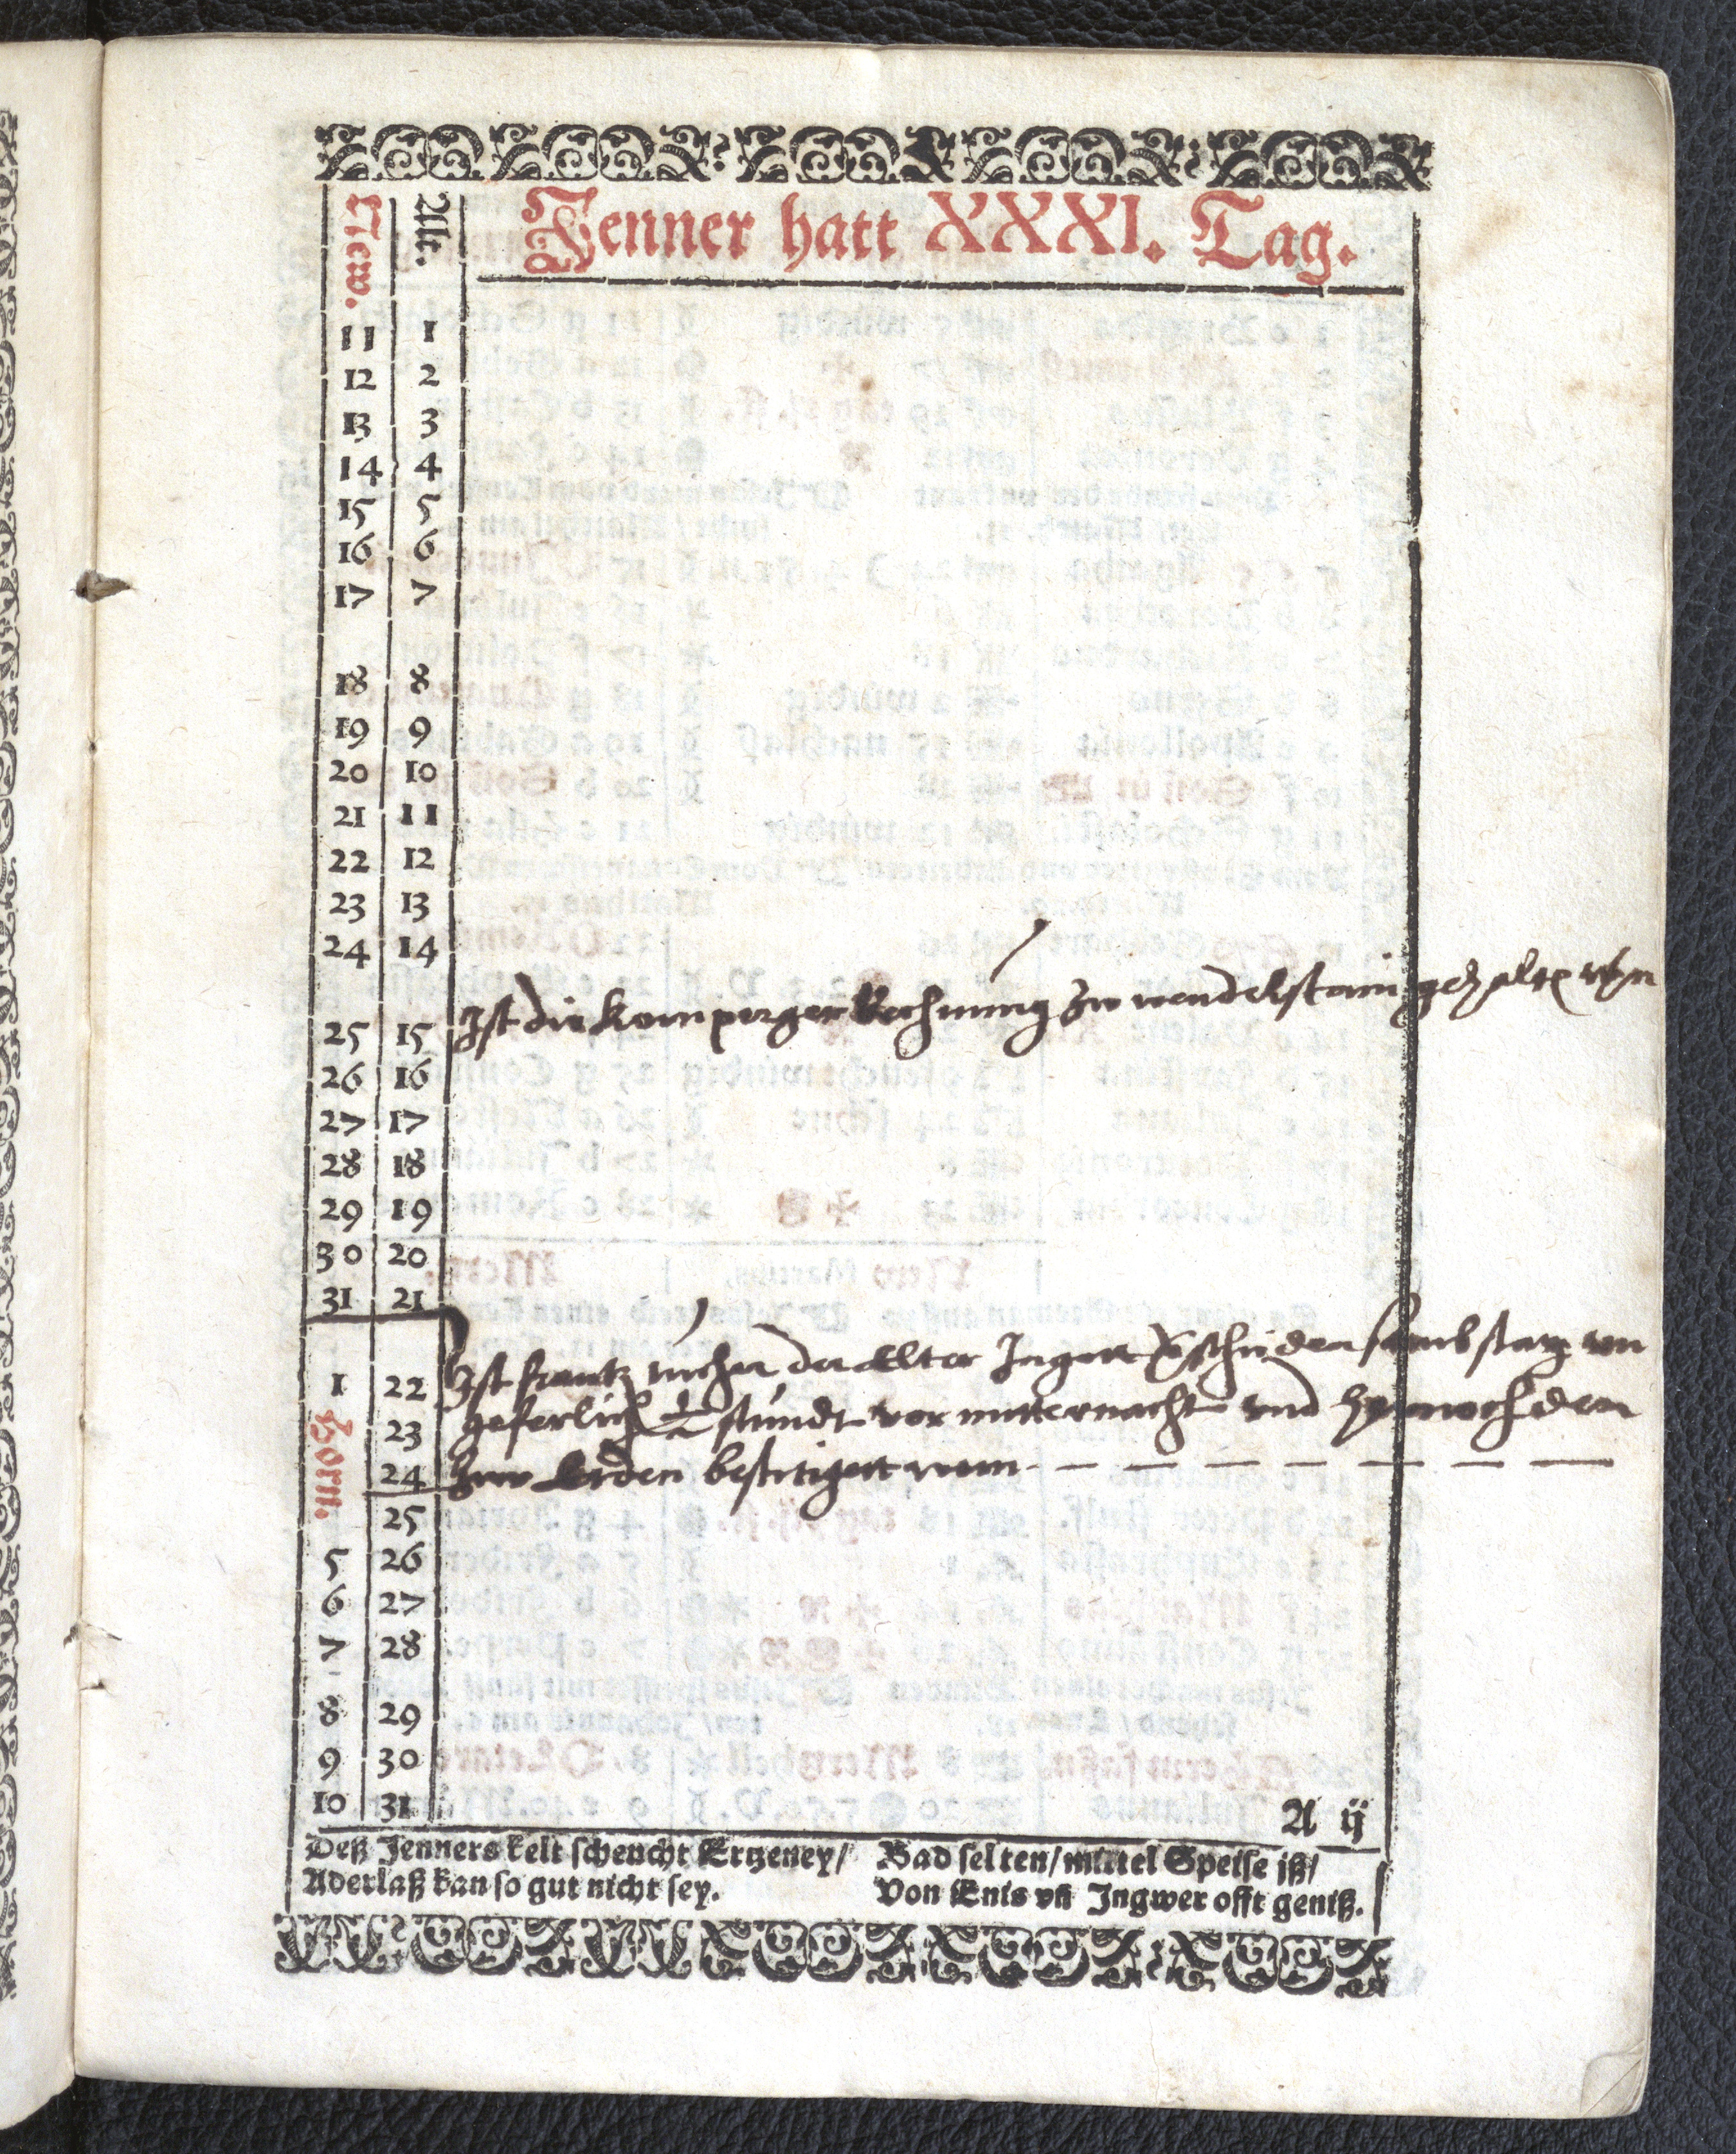 Jenner hatt XXXI. Tag.
New. Alt.
11 1
12 2
13 3
14 4
15 5
16 6
17 7
18 8
19 9
20 10
21 11
22 12
23 13
24 14
Ist die Kornperger Rechnung zu wendelstain gehalten
25 15
26 16
27 17
28 18
29 19
30 20
31 21
Ist frantz der Elter Ingott
1 22
geferlich ½ stundt vor mitternacht vnd
Horn. 23
zuw Erden bestetiget
24
25
5 26
6 27
7 28
8 29
9 30
10 31
A ij
Deß Jenners kelt scheucht Ertzeney/
Aderlaß kan so gut nicht sey.
Bad selten/mittel Speise iß/
Von Enis vñ Ingwer offt geniß.